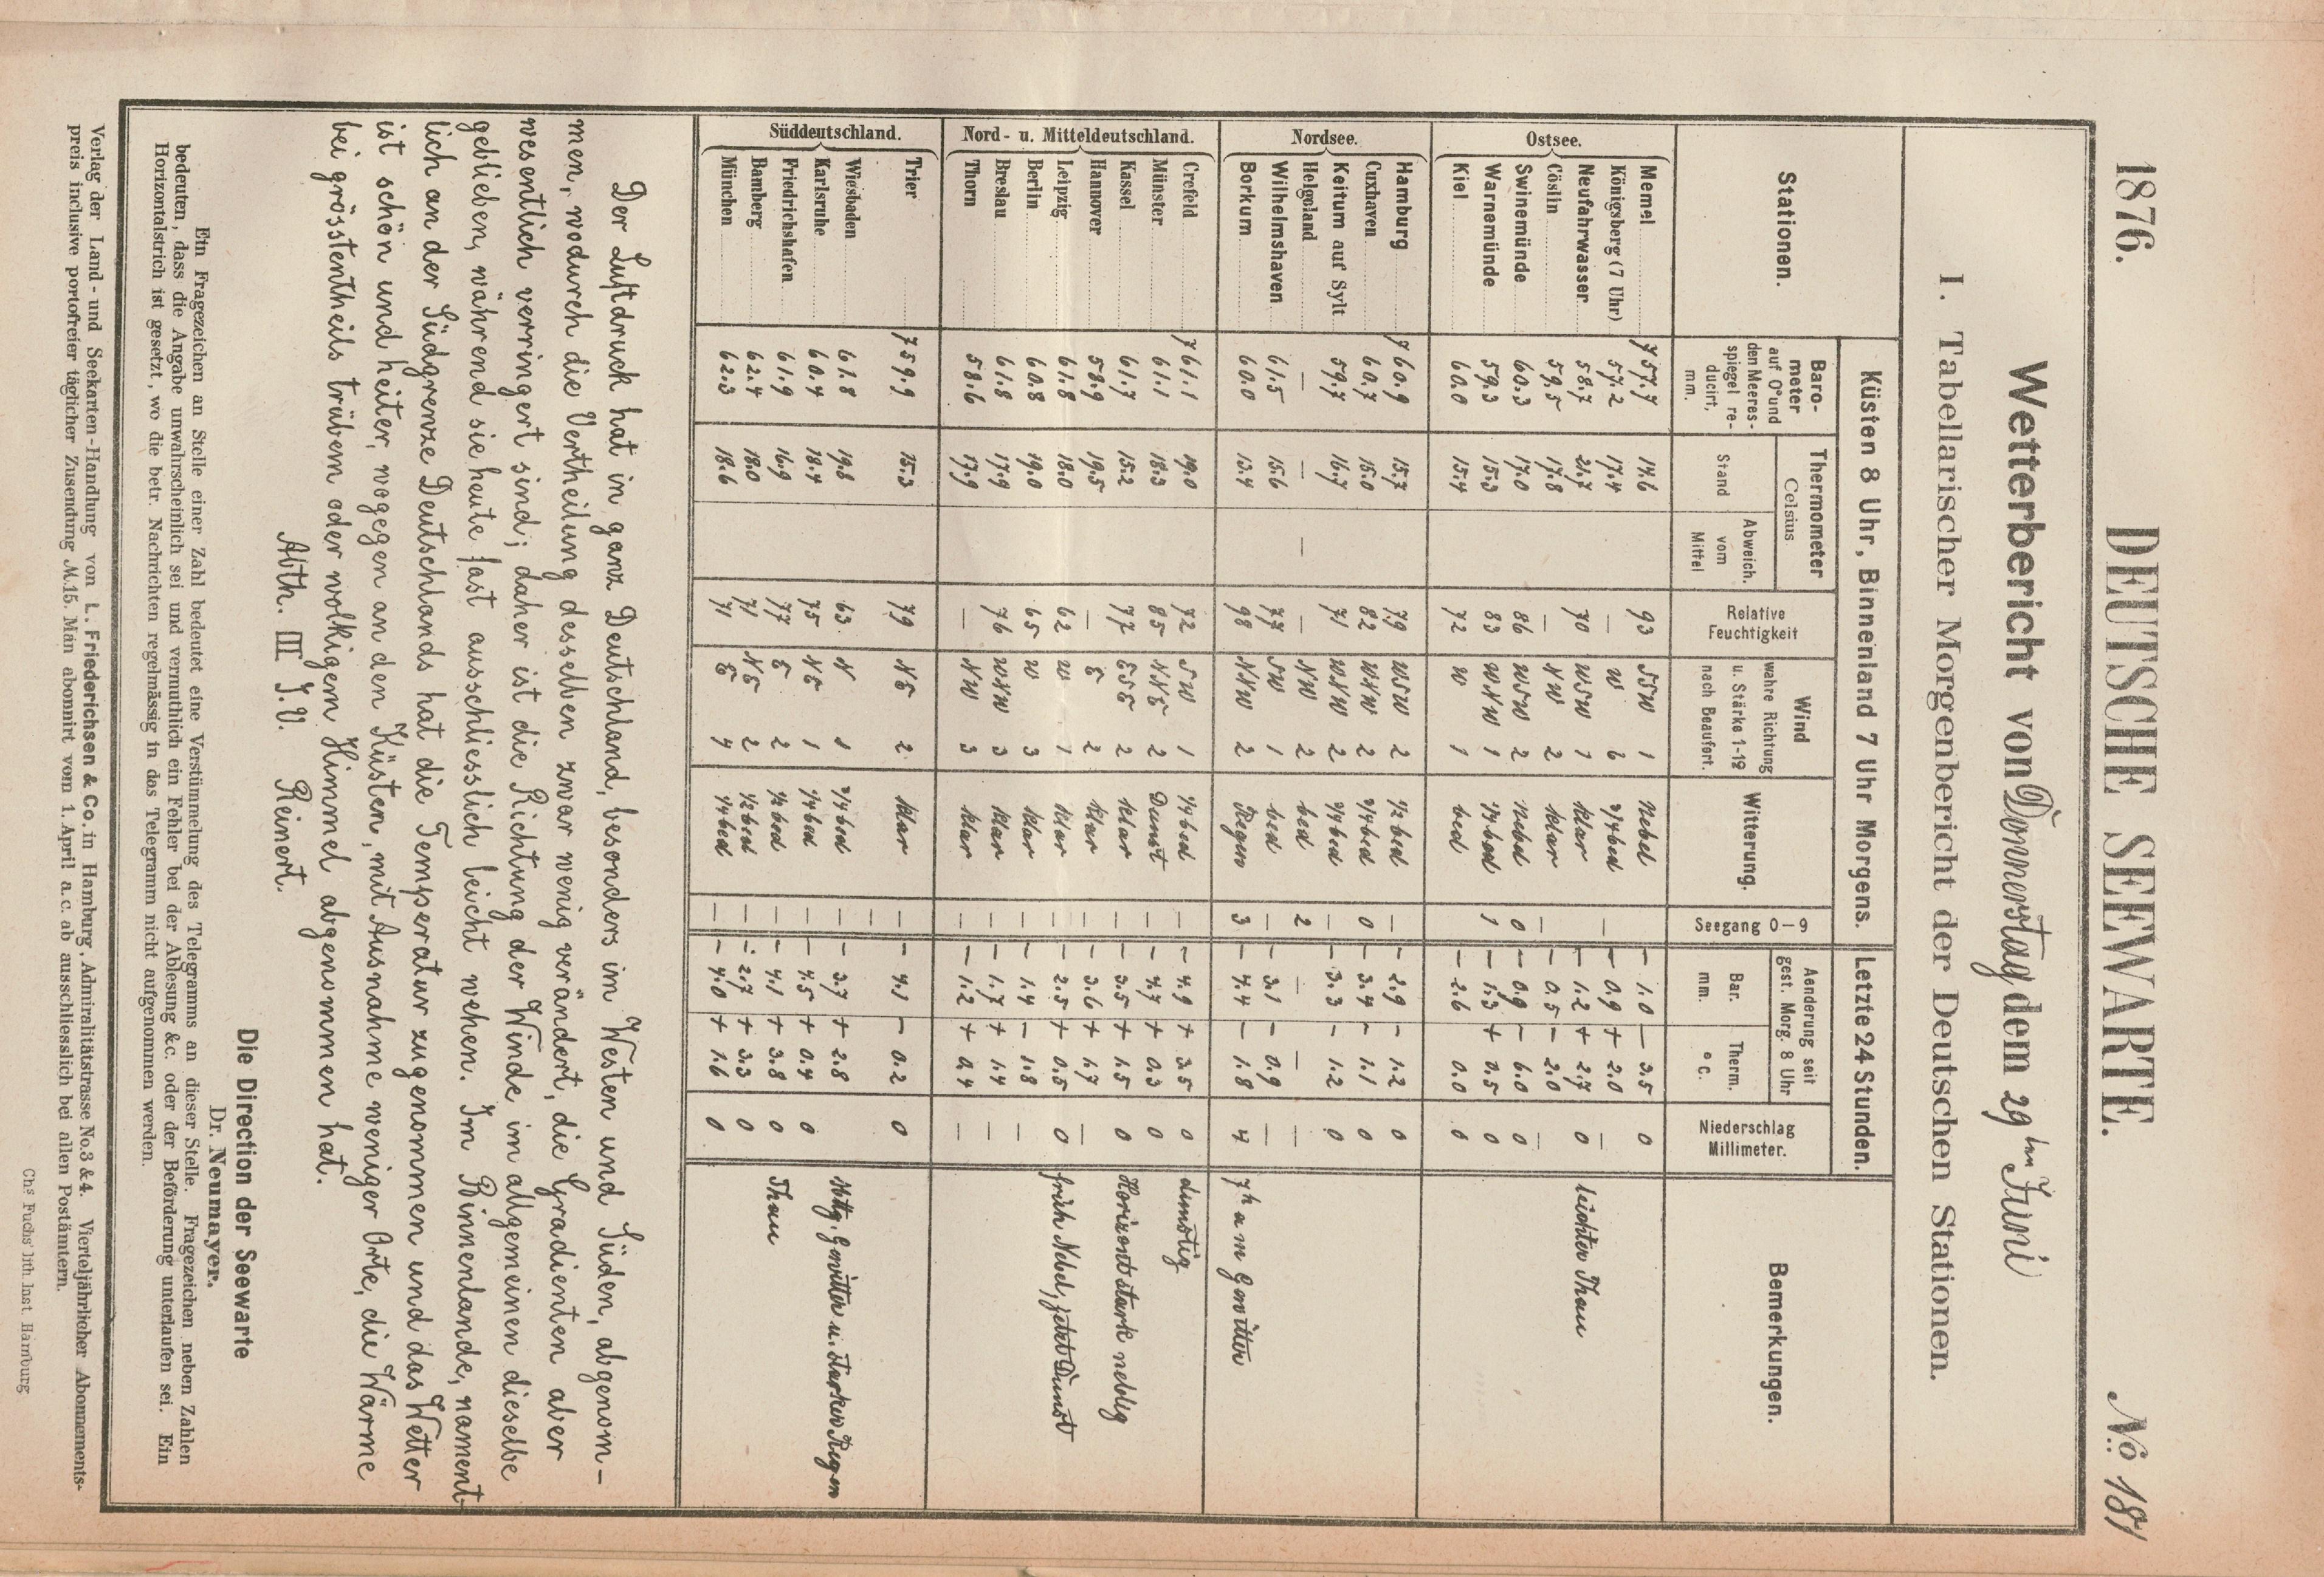 1876. DEUTSCHE SEEWARTE. No. 181
Wetterbericht von Donnerstag dem 29ten Juni
I. Tabellarischer Morgenbericht der Deutschen Stationen.
Küsten 8 Uhr, Binnenland 7 Uhr Morgens. Letzte 24 Stunden.
Stationen. Barometer auf 0° und den Meeresspiegel reducirt, mm. Thermometer Celsius Stand Abweich. vom Mittel Relative Feuchtigkeit Wind wahre Richtung u. Stärke 1-12 nach Beaufort. Witterung. Seegang 0–9 Aenderung seit gest. Morg. 8 Uhr Bar. mm. Therm. °C. Niederschlag Millimeter. Bemerkungen.
Ostsee.
Memel 757.7 14.6 93 SSW 1 Nebel – 1.0 – 3.5 0
Königsberg (7 Uhr) 57.2 17.4 — W 2/4 bed — – 0.9 + 2.0 —
Neufahrwasser 58.7 21.7 70 WSW 1 klar – 1.2 + 2.7 0 leichter Thau
Cöslin 59.5 17.8 — NW 2 klar — – 0.5 – 2.0 —
Swinemünde 60.3 17.0 86 WSW 2 Nebel 0 – 0.9 – 6.0 0
Warnemünde 59.3 15.3 83 WNW 1 bed 1 – 1.3 + 0.5 0
Kiel 60.0 15.4 72 W 1 bed – 2.6 0.0 0
Nordsee.
Hamburg 760.9 15.7 79 WSW 2 1/2 bed — – 2.9 – 1.2 0
Cuxhaven 60.7 15.0 82 WNW 2 bed 0 – 3.4 – 1.1 0
Keitum auf Sylt 59.7 16.7 71 WNW 2 bed — – 3.3 – 1.2 0
Helgoland — — — — NW 2 bed 2 — — —
Wilhelmshaven 61.5 15.6 77 SW 1 bed — – 3.1 – 0.9 —
Borkum 60.0 13.4 98 NNW 2 Regen 3 – 4.4 – 1.8 4 7h am Gewitter
Nord- u. Mitteldeutschland.
Crefeld 761.1 19.0 72 SW 1 1/4 bed — – 4.9 + 3.5 0 dunstig
Münster 61.1 18.3 85 NNE 2 Dunst — – 4.7 + 0.3 0
Kassel 61.7 15.2 77 ESE 2 klar — – 3.5 + 1.5 0 Horizont stark neblig
Hannover 58.9 19.5 — E 2 klar — – 3.6 + 1.7 —
Leipzig 61.8 18.0 62 W 1 klar — – 2.5 + 0.5 0 früh Nebel, jetzt Dunst
Berlin 60.8 19.0 65 W 3 klar — – 1.4 – 1.8 —
Breslau 61.8 17.9 76 WNW 3 klar — – 1.7 + 1.4 —
Thorn 58.6 17.9 — NW 3 klar — – 1.2 + 0.4 —
Süddeutschland.
Trier 759.9 15.3 79 NE 2 klar — – 4.1 – 0.2 0
Wiesbaden 61.8 19.8 63 N 1 bed — – 3.7 + 2.8 Nchtg. Gewitter u. starker Regen
Karlsruhe 60.4 18.4 75 NE 1 1/4 bed — – 4.5 + 0.4 0
Friedrichshafen 61.9 16.9 77 E 2 1/2 bed — – 4.1 + 3.8 0 Thau
Bamberg 62.4 18.0 71 NE 2 1/2 bed — – 2.7 + 3.3 0
München 62.3 18.6 71 E 4 1/4 bed — – 4.0 + 1.6 0
Der Luftdruck hat in ganz Deutschland, besonders im Westen und Süden, abgenom-
men, wodurch die Vertheilung desselben zwar wenig verändert, die Gradienten aber
wesentlich verringert sind; daher ist die Richtung der Winde im allgemeinen dieselbe
geblieben, während sie heute fast ausschliesslich leicht wehen. Im Binnenlande, nament-
lich an der Südgrenze Deutschlands hat die Temperatur zugenommen und das Wetter
ist schön und heiter, wogegen an den Küsten, mit Ausnahme weniger Orte, die Wärme
bei grösstentheils trübem oder wolkigem Himmel abgenommen hat.
Abth. III J.V. Reinert.
Die Direction der Seewarte
Dr. Neumayer.
Ein Fragezeichen an Stelle einer Zahl bedeutet eine Verstümmelung des Telegramms an dieser Stelle. Fragezeichen neben Zahlen
bedeuten, dass die Angabe unwahrscheinlich sei und vermuthlich ein Fehler bei der Ablesung &c. oder der Beförderung unterlaufen sei. Ein
Horizontalstrich ist gesetzt, wo die betr. Nachrichten regelmässig in das Telegramm nicht aufgenommen werden.
Verlag der Land- und Seekarten-Handlung von L. Friederichsen & Co. in Hamburg, Admiralitätstrasse No. 3 & 4. Vierteljährlicher Abonnements-
preis inclusive portofreier täglicher Zusendung M. 15. Man abonnirt vom 1. April a. c. ab ausschliesslich bei allen Postämtern.
Chs Fuchs' lith. Inst. Hamburg